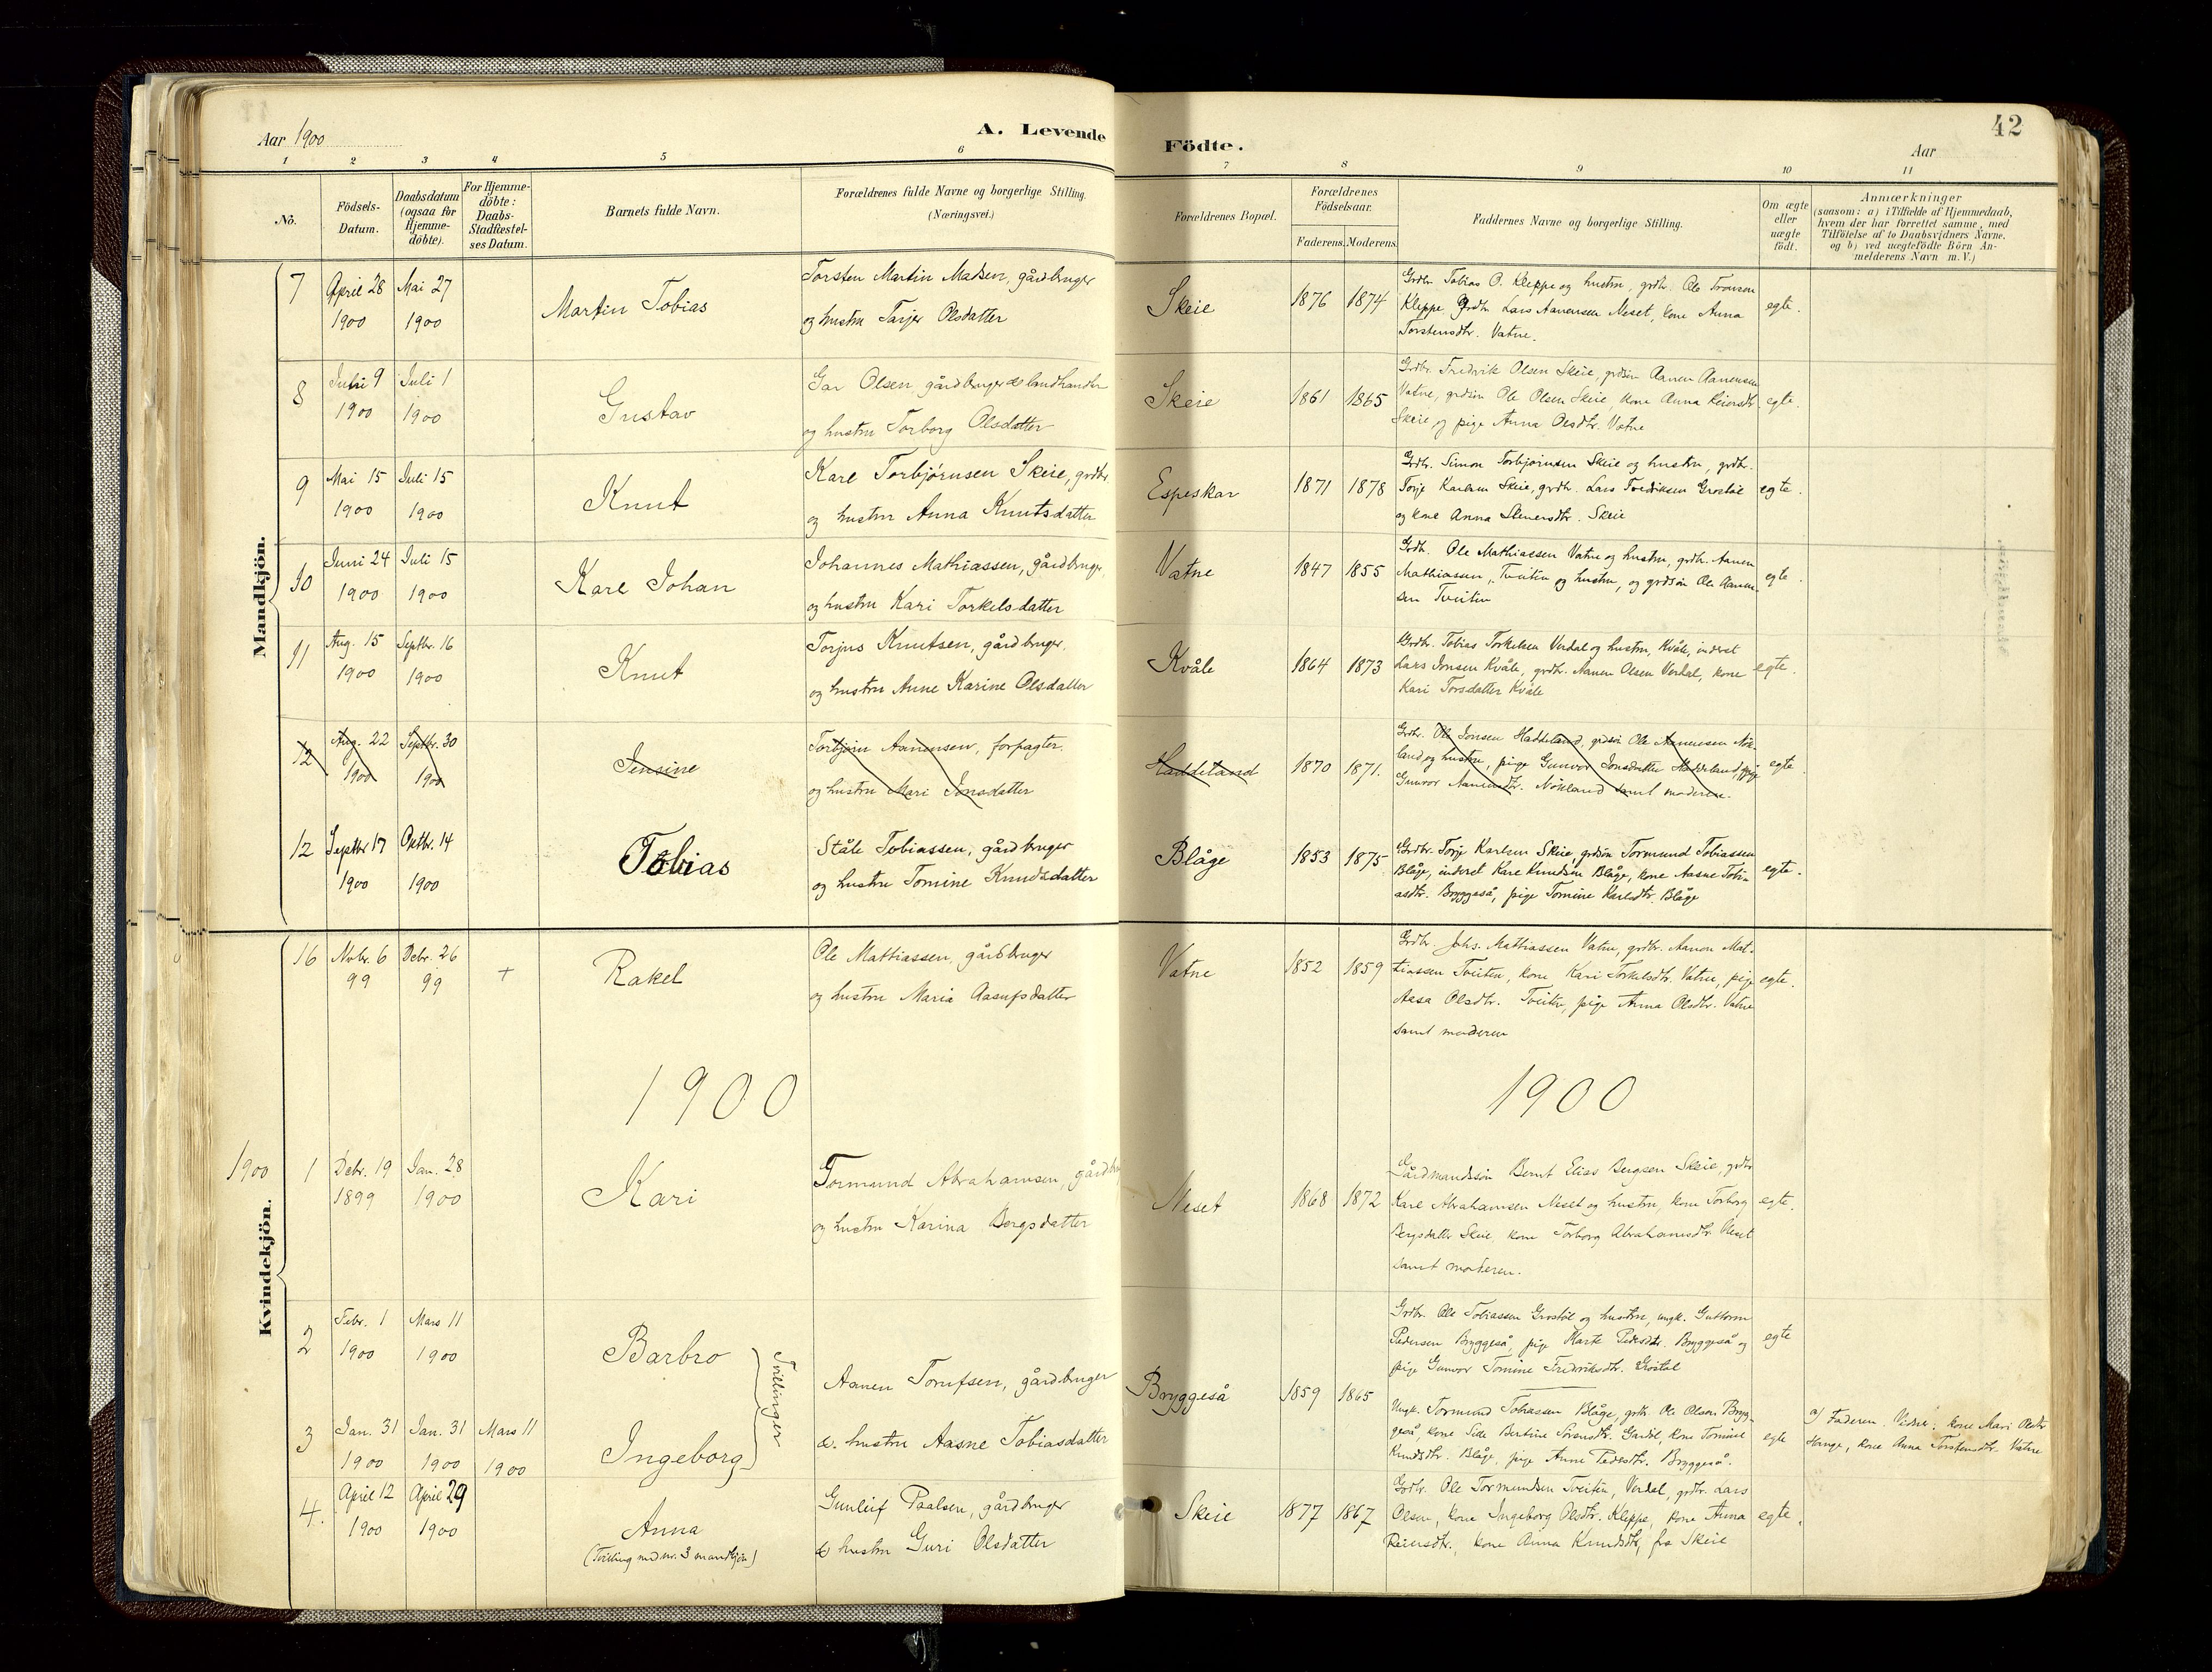 42
Aar 1900
A. Levende
Födte.
Aar
1 2 3 4 5 6 7 8 9 10 11
No.
Födsels-
Datum.
Daabsdatum
(ogsaa for
Hjemme-
döbte).
For Hjemme-
döbte:
Daabs-
Stadfæstel-
ses Datum.
Barnets fulde Navn.
Forældrenes fulde Navne og borgerlige Stilling.
(Næringsvei.)
Forældrenes Bopæl.
Forældrenes
Födselsaar.
Faderens. Moderens.
Faddernes Navne og borgerlige Stilling.
Om ægte
eller
uægte
födt.
Anmærkninger
(saasom: a) i Tilfælde af Hjemmedaab,
hvem der har forrettet samme, med
Tilföielse af to Daabsvidners Navne.
og b) ved uægtefödte Börn An-
melderens Navn m. V.)
Mandkjön.
7
April 28
1900
Mai 27
1900
Martin Tobias
Torsten Martin Madsen, gårdbruger
og hustru Tarjer Olsdatter
Skeie
1876
1874
Grdbr. Tobias O. Kleppe og hustru, grdbr. Ole Tronsen
Kleppe, Grdbr. Lars Aanensen Neset, kone Anna
Torstensdtr. Vatne.
egte.
8
Juni 9
1900
Juli 1
1900
Gustav
Olsen, gårdbruger & landhandler
og hustru Torborg Olsdatter
Skeie
1861
1865
Grdbr. Fredrik Olsen Skeie, grdsøn Aanen Aanensen
Vatne, grdsøn Ole Olsen Skeie, kone Anna Reiersdtr
Skeie og pige Anna Olsdtr. Vatne
egte.
9
Mai 15
1900
Juli 15
1900
Knut
Karl Torbjørnsen Skeie, grdbr.
og hustru Anna Knutsdatter
Espeskar
1871
1878
Grdbr. Simon Torbjørnsen Skeie og hustru, grdbr.
Torje Karlsen Skeie, grdbr. Lars Fredriksen Grostøl
og kone Anna Steinersdtr. Skeie
egte.
10
Juni 24
1900
Juli 15
1900
Karl Johan
Johannes Mathiassen, gårdbruger
og hustru Kari Torkelsdatter
Vatne
1847
1855
Grdb. Ole Mathiassen Vatne og hustru, grdbr. Aanen
Mathiassen, Tveiten og hustru, og grdsøn Ole Aanen-
sen Tveiten
egte.
11
Aug. 15
1900
Septbr. 16
1900
Knut
Torjus Knutsen, gårdbruger.
og hustru Anne Karine Olsdatter
Kvåle
1864
1873
Grdbr. Tobias Torkelsen Verdal og hustru, Kvåle, inderst
Lars Jonsen Kvåle, grdbr. Aanen Olsen Verdal, kone
Kari Torsdatter Kvåle
egte.
12
Aug. 22
1900
Septbr. 30
1900
Jensine
Torbjørn Aanensen, forpagter.
og hustru Mari Jonsdatter
Haddeland
1870
1871.
Grdbr. Ole Jonsen Haddeland, grdsøn Ole Aanensen Nøk-
land og hustru, pige Gunvor Jonsdatter Haddeland, pige
Gunvor Aanensdtr. Nøkland samt moderen.
egte.
12
Septbr 17
1900
Octbr. 14
1900
Tobias
Ståle Tobiassen, gårdbruger
og hustru Tomine Knudsdatter
Blåge
1853
1875
Grdbr. Torje Karlsen Skeie, grdsøn Tormund Tobiassen
Blåge, inderst Karl Knudsen Blåge, kone Aasne Tobi-
asdtr. Bryggeså, pige Tomine Karlsdtr. Blåge
egte.
Kvindekjön.
16
Novbr. 6
99
Debr. 26
99
+
Rakel
Ole Mathiassen, gårdbruger
og hustru Maria Aasufsdatter
Vatne
1852
1859
Grdbr. Johs. Mathiassen Vatne, grdbr. Aanen Mat-
tiassen Tveiten, kone Kari Torkelsdtr. Vatne, pige
Aasa Olsdtr. Tveiten, pige Anna Olsdtr. Vatne
samt moderen
egte.
1900
1900
1900
1
Debr. 19
1899
Jan. 28
1900
Kari
Tormund Abrahamsen, gårdbr
og hustru Karina Bergsdatter
Neset
1868
1872
Gårdmandssøn Bernt Elias Bergsen Skeie, grdbr
Karl Abrahamsen Neset og hustru, kone Torborg
Bergsdatter Skeie, kone Torborg Abrahamsdtr. Neset
samt moderen.
egte.
2
Febr. 1
1900
Mars 11
1900
Barbro
Tvillinger
Aanen Torufsen, gårdbruger
Bryggeså
1859
1865
Grdbr. Ole Tobiassen Grostøl og hustru, ungk. Guttorm
Pedersen Bryggeså, pige Marte Pedersdtr. Bryggeså og
pige Gunvor Tomine Fredriksdtr. Grostøl
egte
3
Jan. 31
1900
Jan. 31
1900
Mars 11
1900
Ingeborg
& hustru Aasne Tobiasdatter
Ungk. Tormund Tobiassen Blåge, grdbr. Ole Olsen Bryg-
geså, kone Bertine Sørensdtr. kone Tomine
Knudsdtr. Blåge, pige Anne Pedersdtr. Bryggeså.
egte
a) Faderen. Vidner: kone Mari Olsdtr
Hauge, kone Anna Torstensdtr. Vatne
4.
April 12
1900
April 29
1900
Anna
(Tvilling med nr. 3 mandkjøn)
Gunleif Paalsen, gårdbruger
& hustru Guri Olsdatter
Skeie
1877
1867
Grdbr. Ole Tormundsen Tveiten, Verdal, grdbr. Lars
Olsen, kone Ingeborg Olsdtr. Kleppe, kone Anna
Reiersdtr., kone Anna Knudsdtr, fra Skeie
egte.